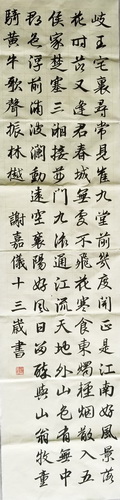 岐王宅裏尋常見崔九堂前幾度聞正是江南好風景落
花時節又逢君春城無處不飛花寒食東燭輕烟散入五
侯家楚塞三湘接荆門九派通江流天地外山色有無中
郡邑浮前浦波瀾動遠空襄陽好風日留醉與山翁牧童
騎黃牛歌聲振林樾 謝嘉儀十三歲書